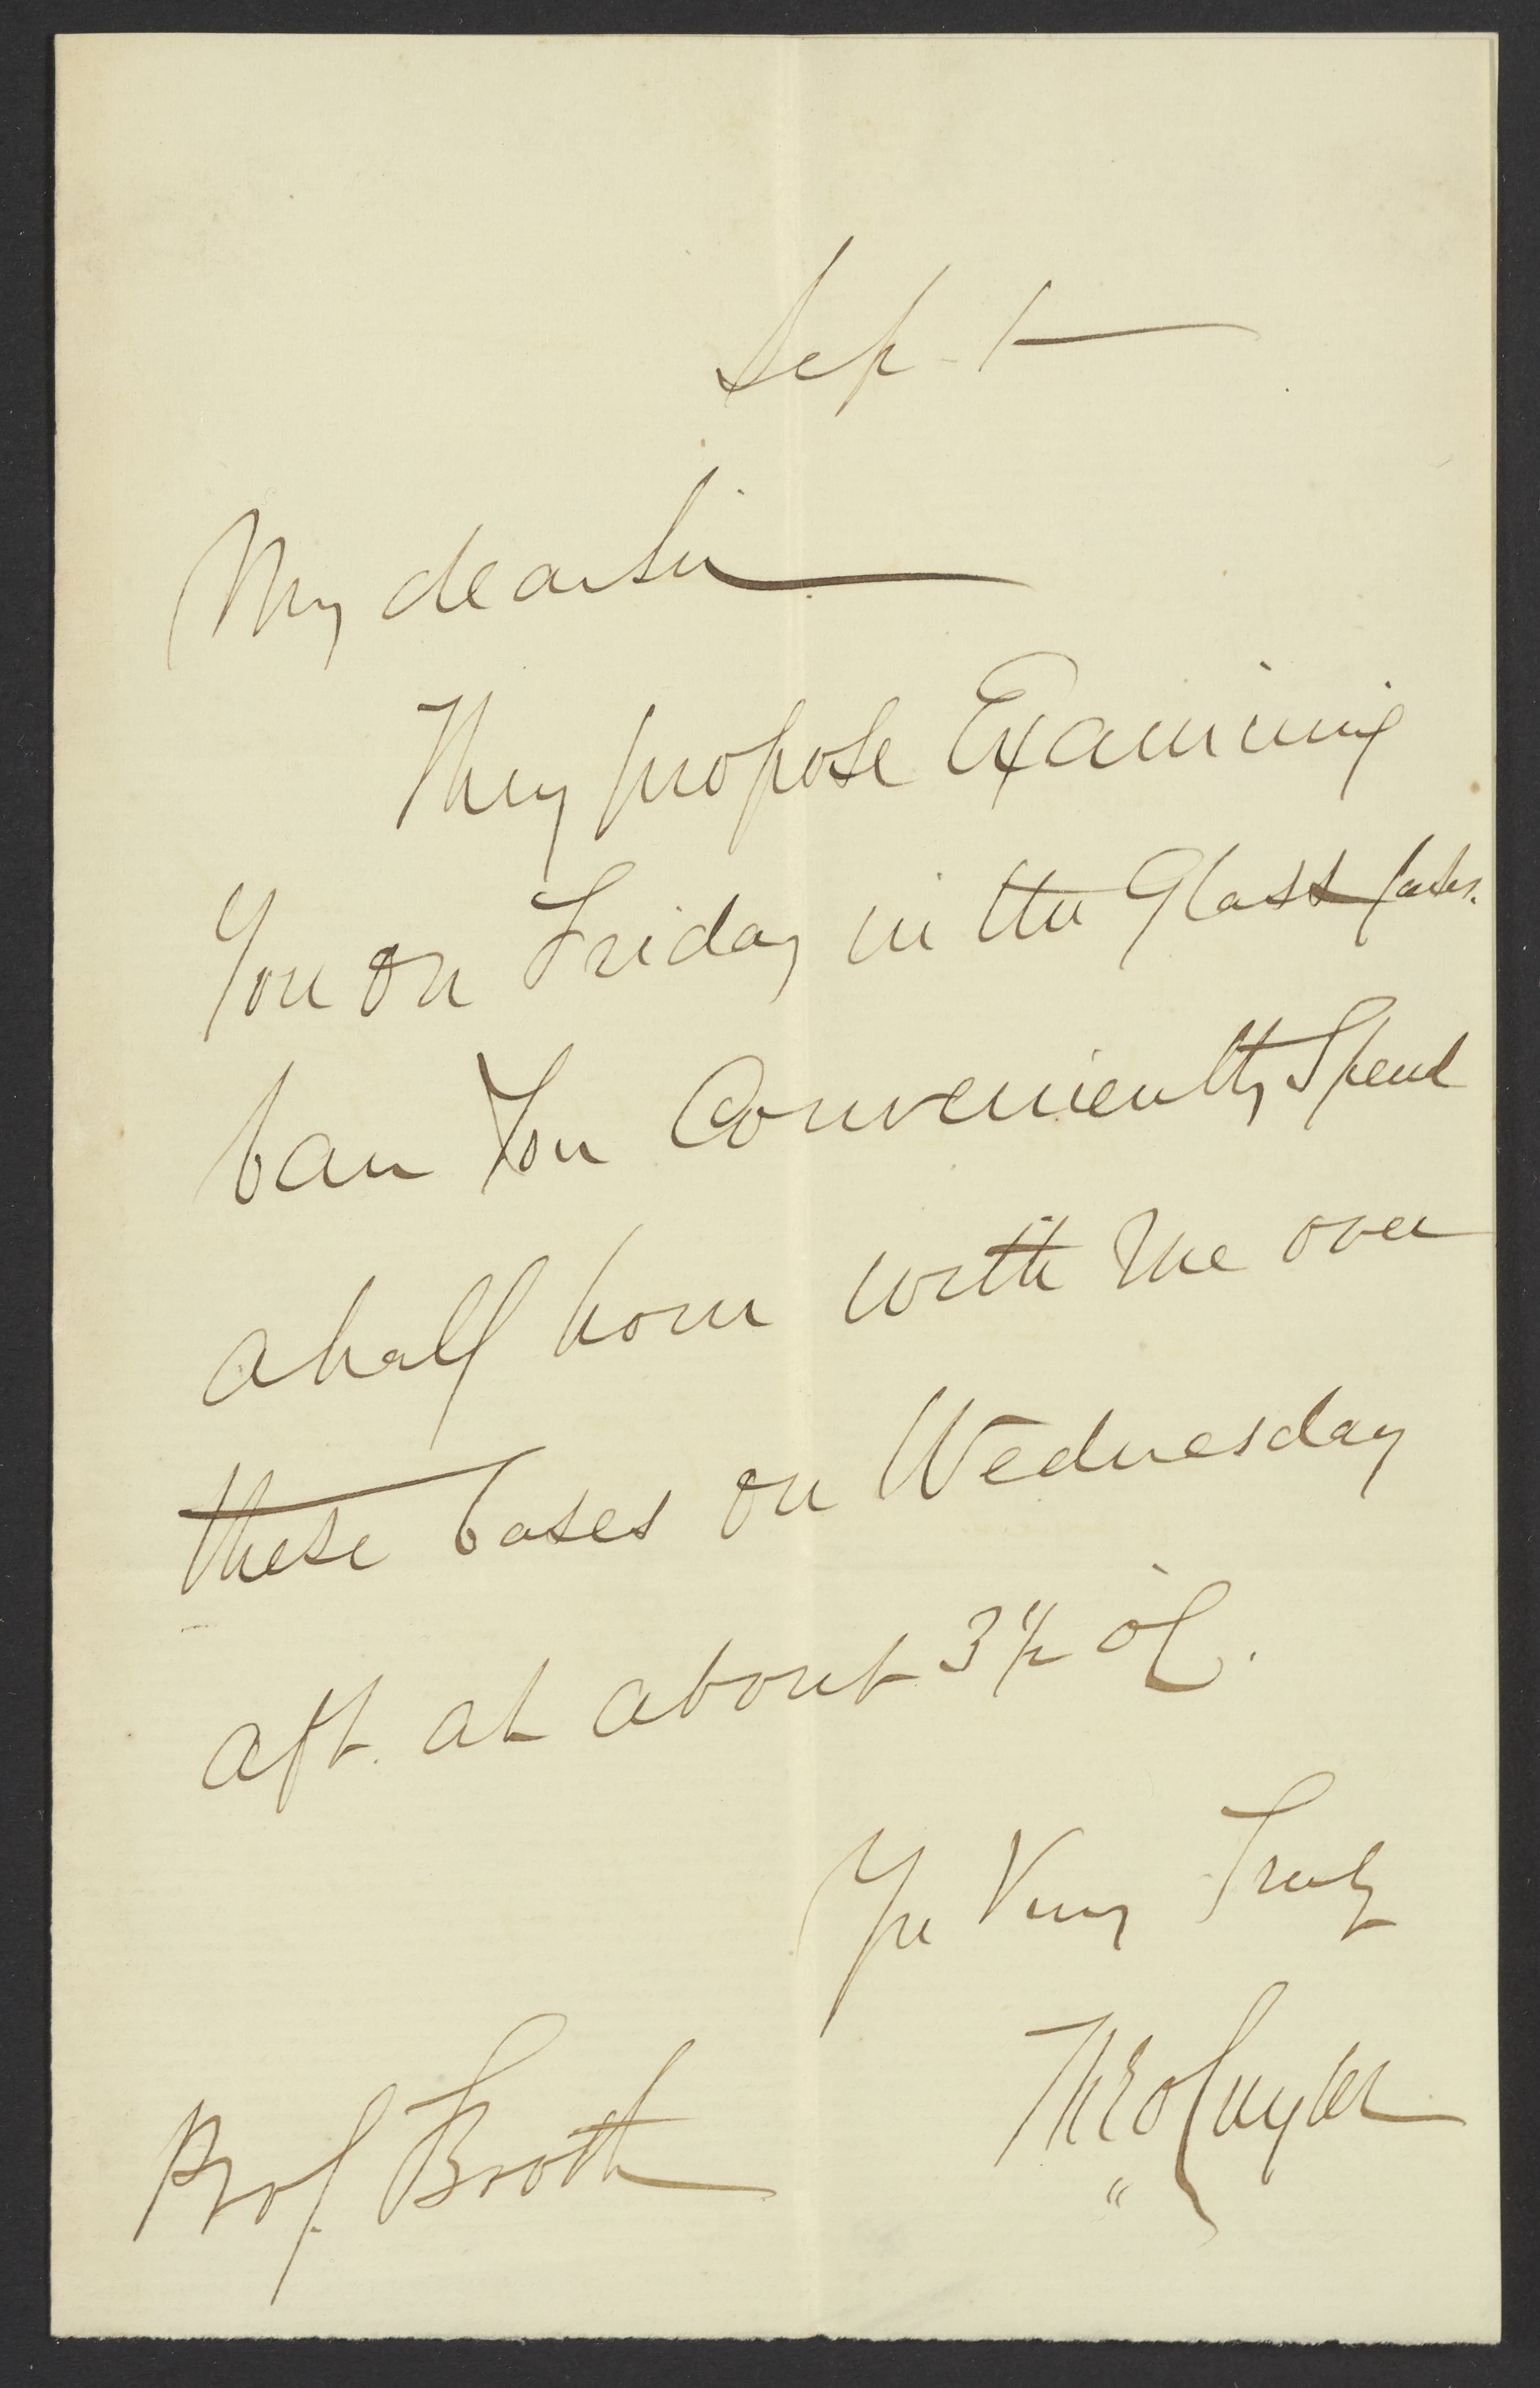 Sep - 1
My dear Sir
They propose Examining
You on Friday in the Glass Cases.
Can You Conveniently Spend
a half hour with me over
these Cases on Wednesday
aft. at about 3 1/2 o'C.
Yr Very Truly
Theo Cuyler
Prof. Booth